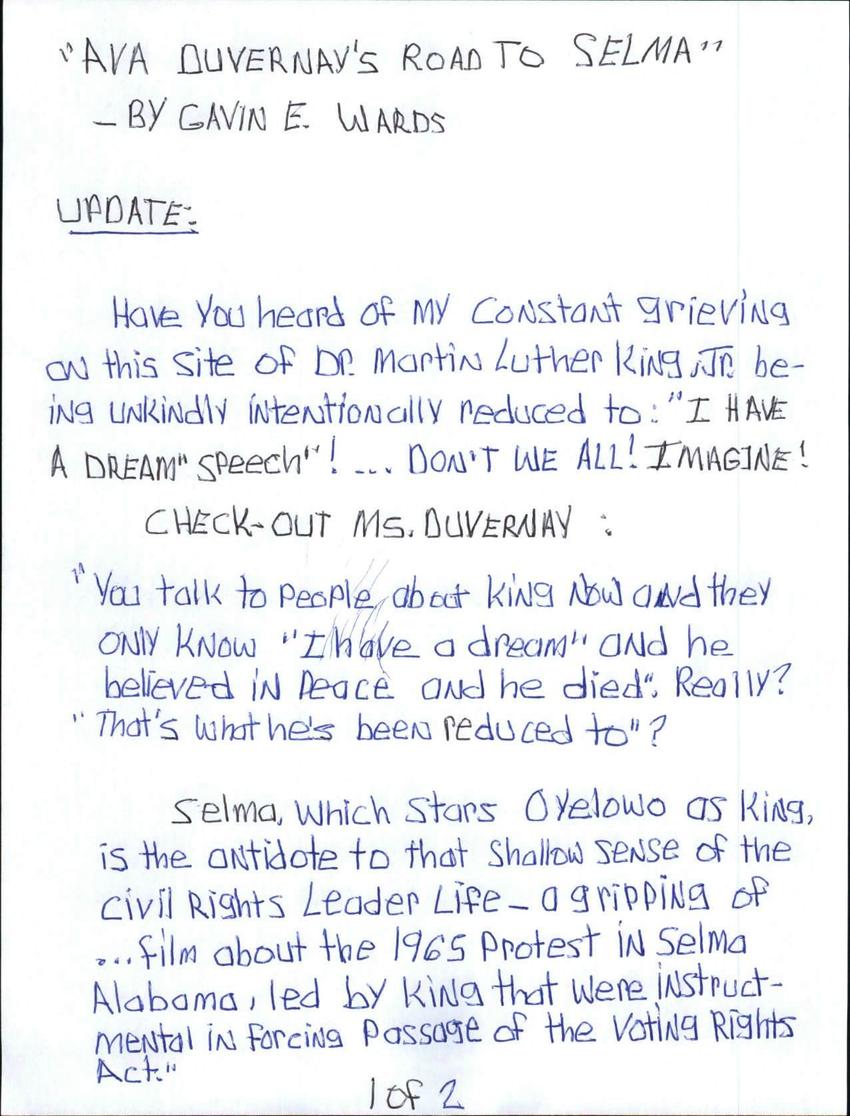 "AVA DUVERNAY'S ROAD TO SELMA"
- BY GAVIN E. WARDS
UPDATE:
Have You heard of MY Constant grieving
on this site of Dr. Martin Luther King, Jr. be-
ing unkindly intentionally reduced to: "I HAVE
A DREAM" Speech"! ... DON'T WE ALL! IMAGINE!
CHECK-OUT MS. DUVERNAY :
"You talk to people about King Now and they
ONLY KNOW "I have a dream" and he
believed in Peace and he died". Really?
"That's what he's been reduced to"?
Selma, which Stars Oyelowo as King,
is the antidote to that Shallow sense of the
Civil Rights Leader Life - a gripping of
...film about the 1965 Protest in Selma
Alabama, led by King that were instruct-
mental in forcing Passage of the Voting Rights
Act."
1 of 2